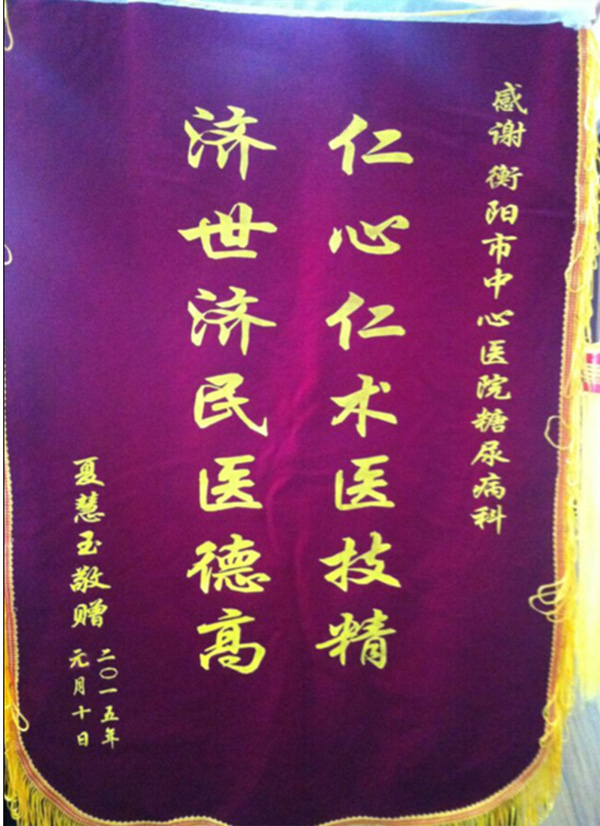 感谢 衡阳市中心医院糖尿病科
仁心仁术医技精
济世济民医德高
夏慧玉敬赠
二〇一五年
元月十日